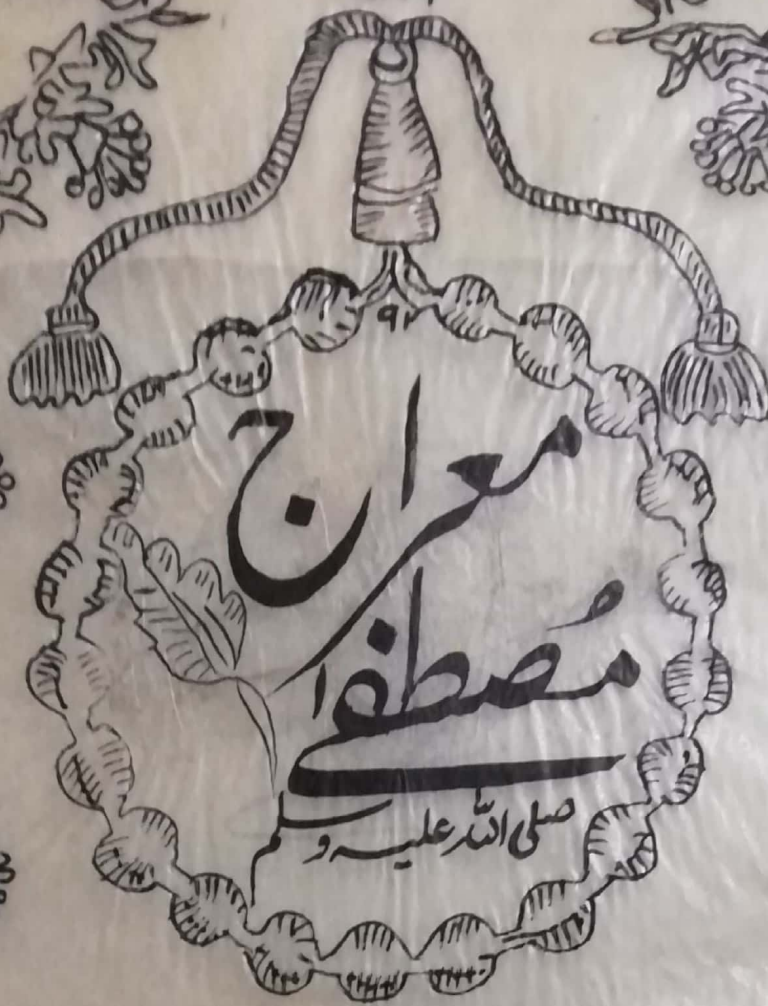 ۹۲
معراج
مُصطفیٰ
صلی اللہ علیہ وسلم